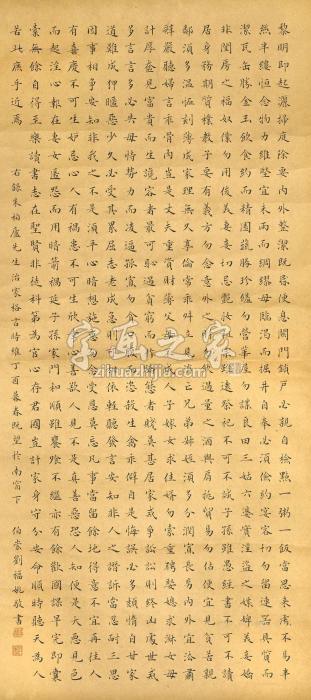 黎明即起灑掃庭除要內外整潔既昏便息關門鎖戶必親自檢點一粥一飯當思來處不易半
絲半縷恒念物力維艱宜未雨而綢繆毋臨渴而掘井自奉必須儉約宴客切勿留連器具質而
潔瓦缶勝金玉飲食約而精園蔬勝珍羞勿營華屋勿謀良田三姑六婆實淫盜之媒婢美妾嬌
非閨房之福奴僕勿用俊美妻妾切忌艷妝祖宗雖遠祭祀不可不誠子孫雖愚經書不可不讀
居身務期質樸教子要有義方勿貪意外之財勿飲過量之酒與肩挑貿易勿佔便宜見貧苦親
鄰須多溫恤刻薄成家理無久享倫常乖舛立見消亡兄弟叔姪須多分潤寡長幼內外宜法肅
辭嚴聽婦言乖骨肉豈是丈夫重貲財薄父母不成人子嫁女求佳婿勿索重聘娶媳求淑女毋
計厚奩見富貴而生諂容者最可恥遇貧窮而作驕態者賤莫甚居家戒爭訟訟則終凶處世戒
多言言多必失毋恃勢力而凌逼孤寡勿貪口腹而恣殺牲禽乖僻自是悔誤必多頹惰自甘家
道難成狎暱惡少久必受其累屈志老成急則可相依輕聽發言安知非人之譖訴當忍耐三思
因事相爭安知非我之不是須平心暗想施惠勿念受恩莫忘凡事當留餘地得意不宜再往人
有喜慶不可生妒忌心人有禍患不可生欣幸心善欲人見不是真善惡恐人知便是大惡見色
而起淫心報在妻女匿怨而用暗箭禍延子孫家門和順雖饔飧不繼亦有餘歡國課早完即囊
橐無餘自得至樂讀書志在聖賢非徒科第為官心存君國豈計家身守分安命順時聽天為人
若此庶乎近焉
右錄朱柏廬先生治家格言時維丁酉暮春既望於南窗下 伯崇劉福姚敬書
字画之家